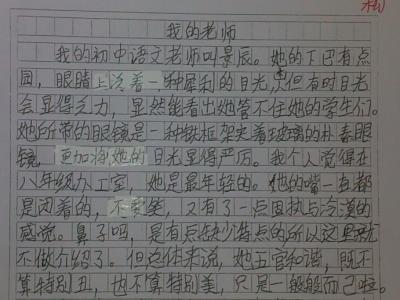 我的老师
我的初中语文老师叫景辰。她的下巴有点
圆，眼睛上泛着一种犀利的目光，但有时目光
会显得乏力，显然能看出她管不住她的学生们。
她所带的眼镜是一种铁框架夹着玻璃的朴素眼
镜，更加将她的目光显得严厉。我个人觉得在
八年级办公室，她是最年轻的。她的嘴一直都
是闭着的，不爱笑，又有了一点固执与冷漠的
感觉。鼻子吗，是有点缺少特点的所以这里就
不做介绍了。但总体来说，她五官和谐，既不
算特别丑，也不算特别美，只是一般般而已啦。